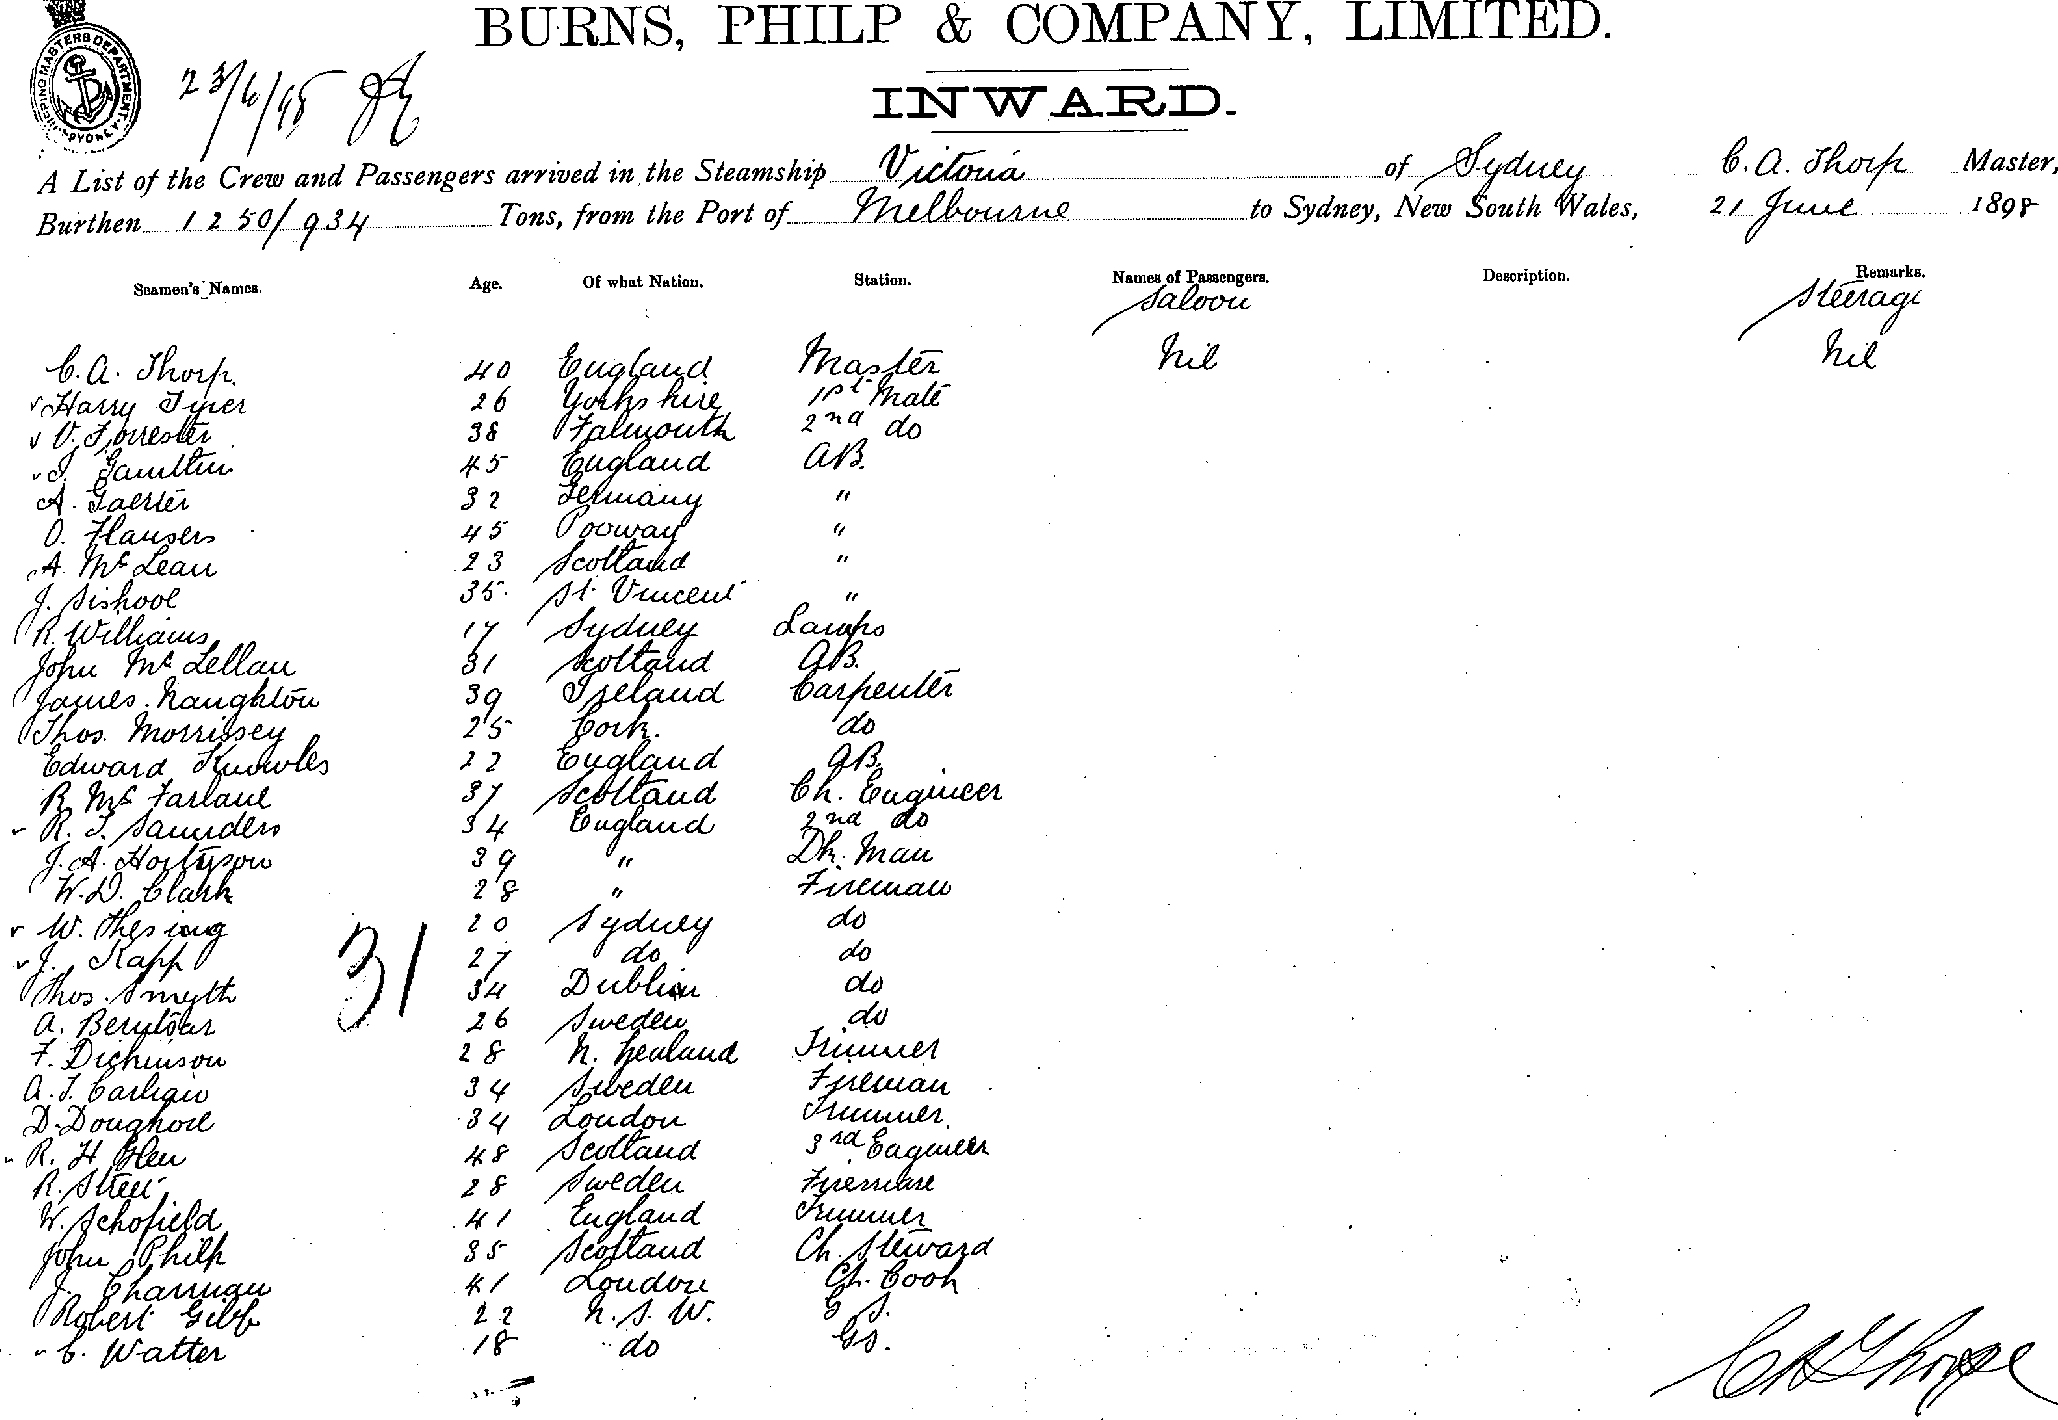 BURNS, PHILP & COMPANY, LIMITED.
SHIPPING MASTERS DEPARTMENT
SYDNEY
23/6/98
INWARD.
A List of the Crew and Passengers arrived in the Steamship Victoria of Sydney C. A. Thorp Master,
Burthen 1250/934 Tons, from the Port of Melbourne to Sydney, New South Wales, 21 June 1898
Seamen's Names. Age. Of what Nation. Station. Names of Passengers. Description. Remarks.
Saloon Steerage
C. A. Thorp. 40 England Master Nil Nil
Harry Tyrer 26 Yorkshire 1st Mate
V. Forrester 38 Falmouth 2nd do
45 England AB.
A. 32 Germany "
O. Hansers 45 "
A. McLean 23 Scotland "
J. 35. St. Vincent "
R. Williams 17 Sydney Lamps
John McLellan 31 Scotland AB.
James Naughton 39 Ireland Carpenter
Thos. Morrissey 25 Cork. do
Edward Knowles 22 England AB.
R. McFarlane 37 Scotland Ch. Engineer
R. J. Saunders 34 England 2nd do
J. A. 39 " Dk. Man
W. D. Clark 28 " Fireman
W. Thesing 20 Sydney do
J. Kapp 27 do do
31
Thos. Smyth 34 Dublin do
A. 26 Sweden do
F. Dickinson 28 N. Zealand Trimmer
A. J. 34 Sweden Fireman
D. 34 London Trimmer.
R. H. Glen 48 Scotland 3rd Engineer
R. Street 28 Sweden Fireman
W. Schofield 41 England Trimmer
John Philp 35 Scotland Ch. Steward
J. Charman 41 London Ch. Cook
Robert Gibb 22 N. S. W. G S.
C. Watter 18 do GS.
C A Thorpe